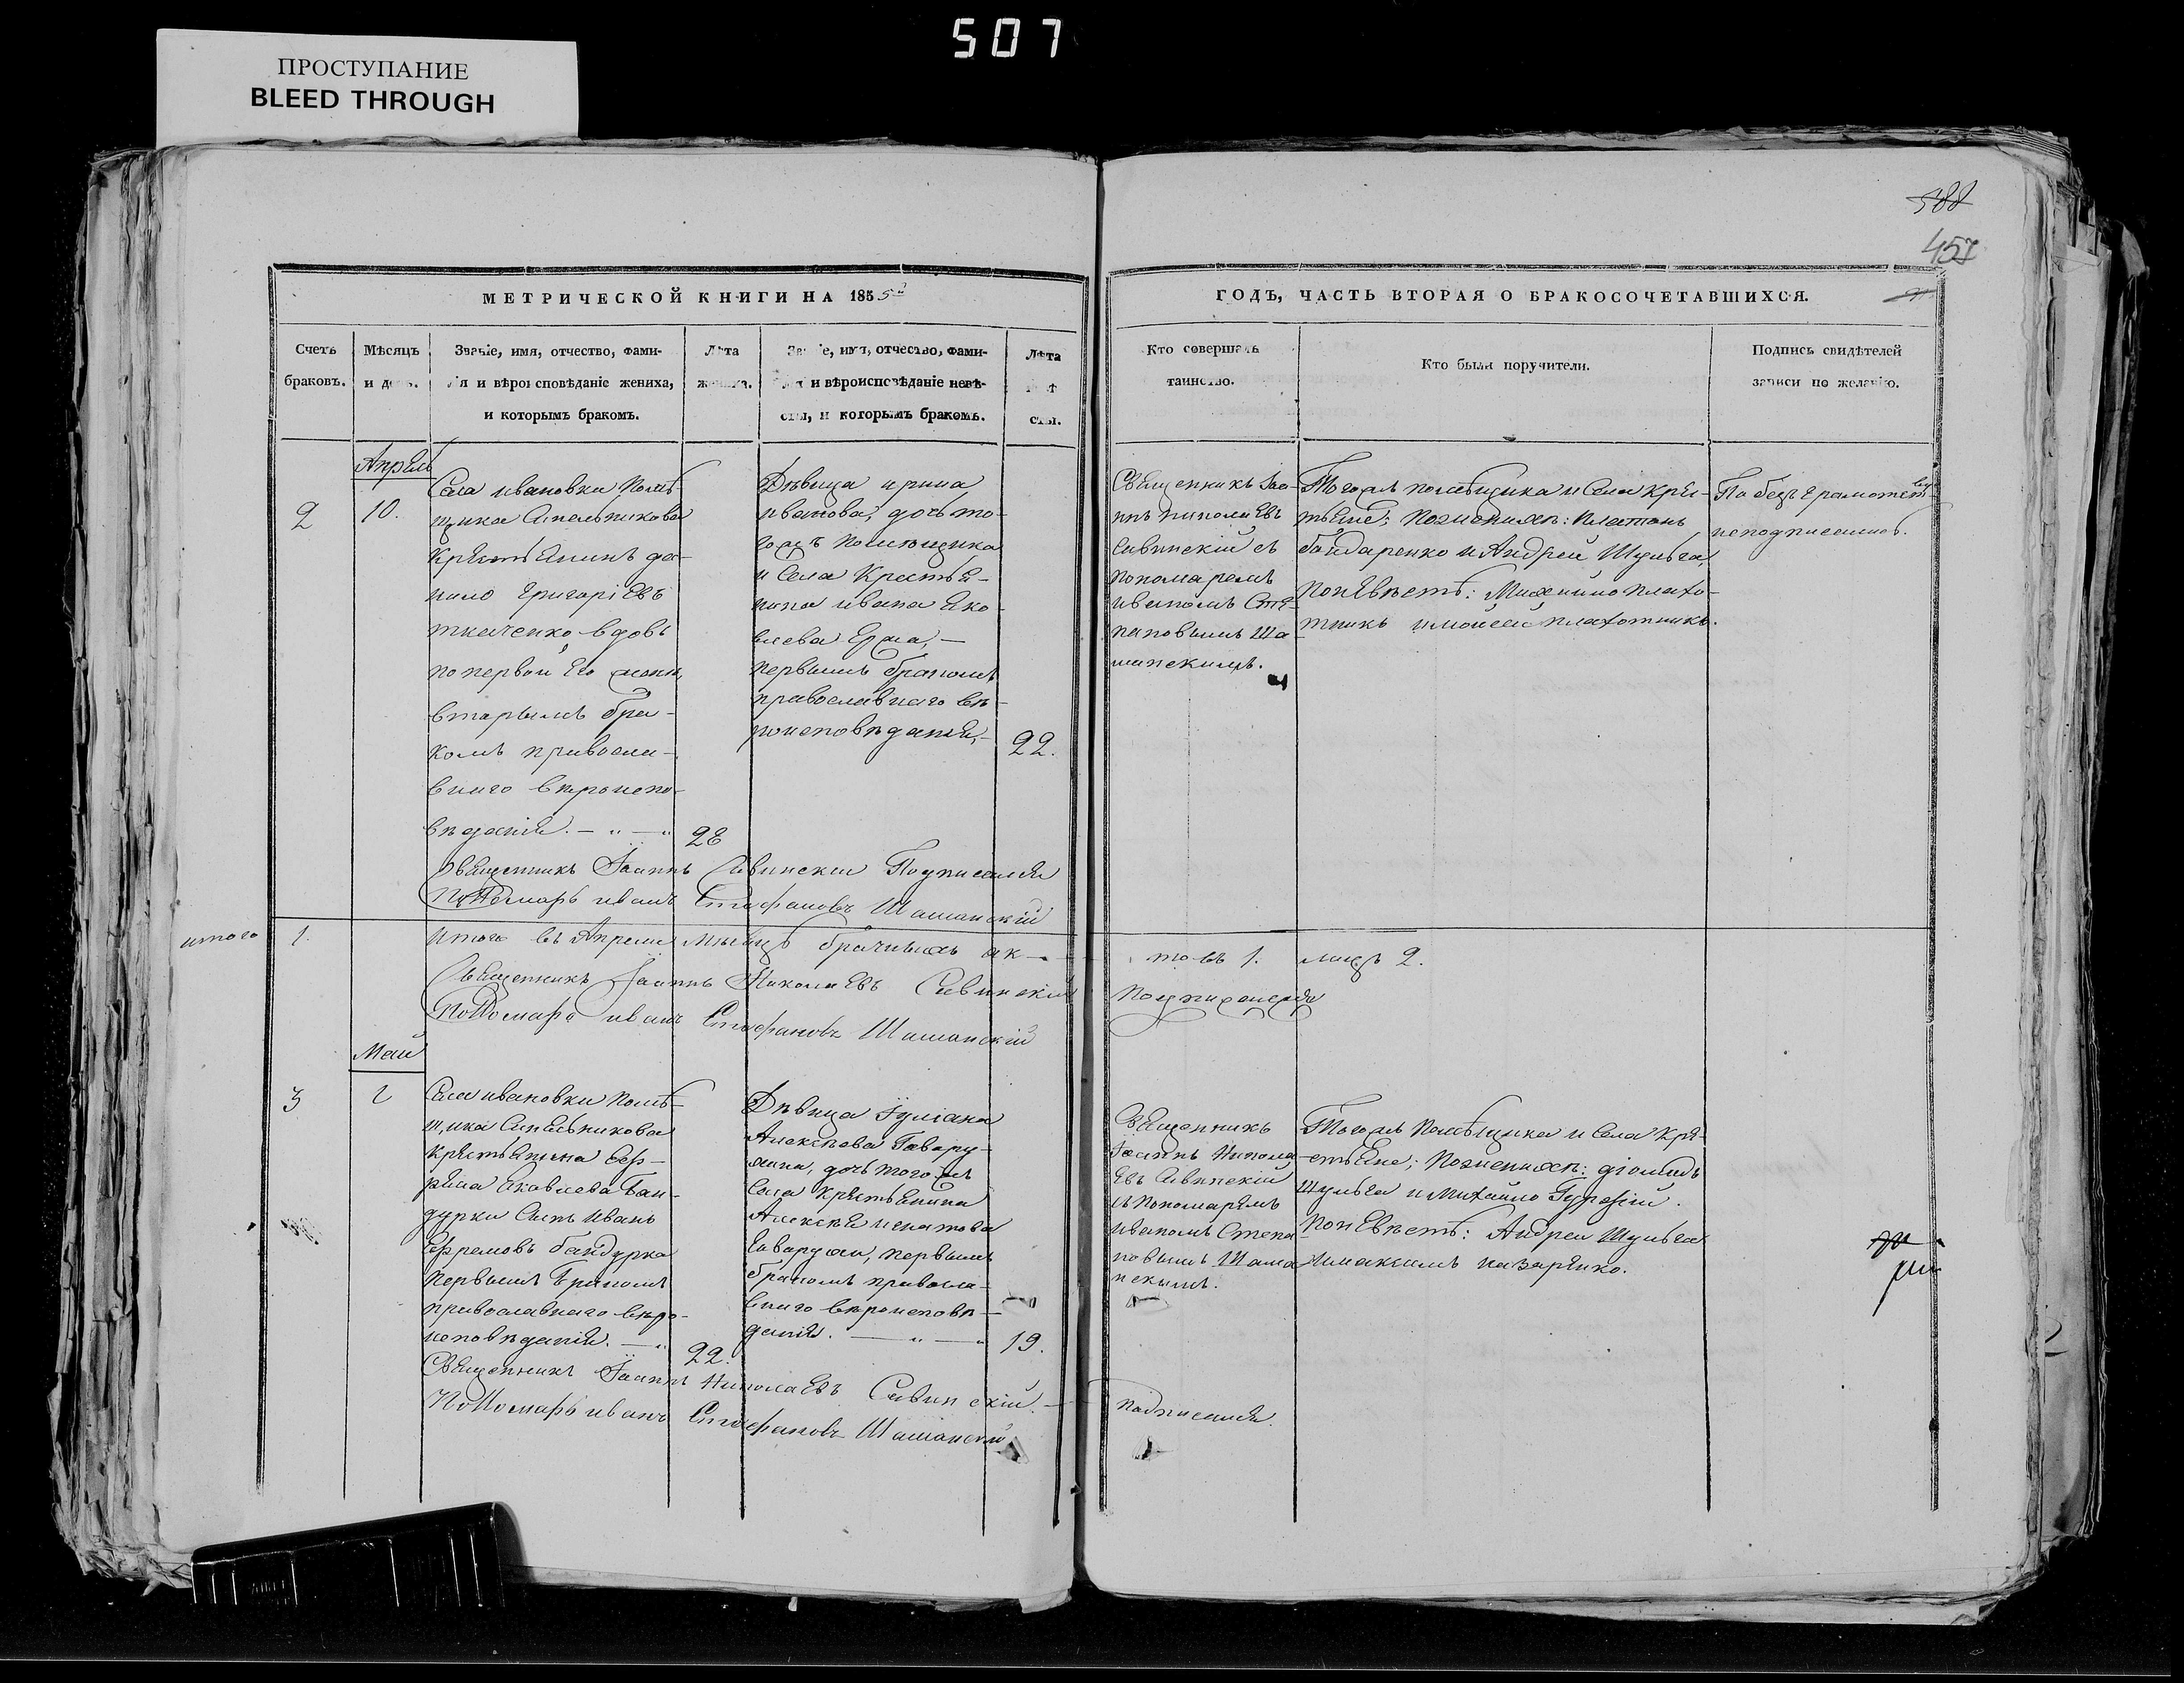 507
ПРОСТУПАНИЕ
BLEED THROUGH
588
457
МЕТРИЧЕСКОЙ КНИГИ НА 1855
Счетъ
браковъ.
Мѣсяцъ
и день.
Званіе, имя, отчество, фами-
лія и вѣроисповѣданіе жениха,
и которымъ бракомъ.
Лѣта
жениха.
Званіе, имя, отчество, фами-
лія и вѣроисповѣданіе невѣ-
сты, и которымъ бракомъ.
Лѣта
невѣ-
сты.
ГОДЪ, ЧАСТЬ ВТОРАЯ О БРАКОСОЧЕТАВШИХСЯ.
Кто совершалъ
таинство.
Кто были поручители.
Подпись свидѣтелей
записи по желанію.
2
Апрѣль
10.
Села ивановки помѣ-
щика Синельникова
крестьянинъ да-
нило григоріевъ
ткаченко, вдовъ
по первой его жены,
вторымъ бра-
комъ православ-
внаго вѣроиспо-
вѣданія. — „ — „
28
Дѣвица ирина
иванова, дочь то-
гожъ помѣщика
и села крестья-
нина ивана яко-
влева Ерма, —
первымъ бракомъ
православнаго вѣ-
роисповѣданія, —
22.
Священникъ Іоа-
ннъ николаевъ
Савинскій съ
пономаремъ
иваномъ Сте-
пановымъ Ша-
шанскимъ.
Тогожъ помѣщика и села кре-
стьяне; по женихѣ: платонъ
бондаренко и Андрей Шульга,
по невѣстѣ: Михайло плахо-
тникъ и мойсей плахотникъ.
По безграмотству
неподписались.
Священникъ Іоаннъ Савинскій Подписался
Пономарь иванъ Стефановъ Шашанскій
итого
1.
Итого въ Апрелѣ мѣсяцѣ брачныхъ ак-
товъ 1. лицъ 2.
Священникъ Іоаннъ Николаевъ Савинскій
подписался
Пономарь иванъ Стефановъ Шашанскій
Май
3
2
Села ивановки помѣ-
щика Синельникова
крестьянина Еф-
рема Яковлева Бан-
дурки сынъ иванъ
Ефремовъ бандурка
первымъ бракомъ
православнаго вѣро-
исповѣданія. — „
22.
Дѣвица Іуліана
Алексѣева
дочь тогожъ
села крестьянина
Алексѣя игнатова
первымъ
бракомъ правосла-
внаго вѣроисповѣ-
данія. — „ — „
19.
Священникъ
Іоаннъ Никола-
евъ Савинскій
съ пономаремъ
иваномъ Степа-
новымъ Шаша-
нскимъ.
Тогожъ помѣщика и села кре-
стьяне; по женихѣ: діомидъ
Шульга и Михайло
по невѣстѣ: Андрей Шульга
и максимъ назаренко.
Священникъ Іоаннъ Николаевъ Савинскій. —
подписался.
Пономарь иванъ Стефановъ Шашанскій